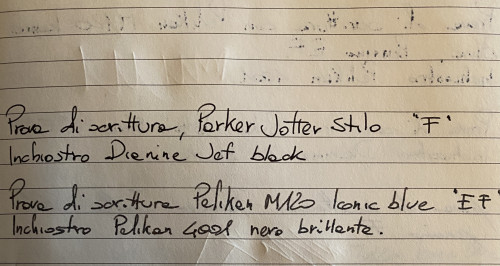 Prova di scrittura, Parker Jotter stilo "F"
Inchiostro Diamine Jet black
Prova di scrittura Pelikan M120 Iconic blue "EF"
Inchiostro Pelikan 4001 nero brillante.